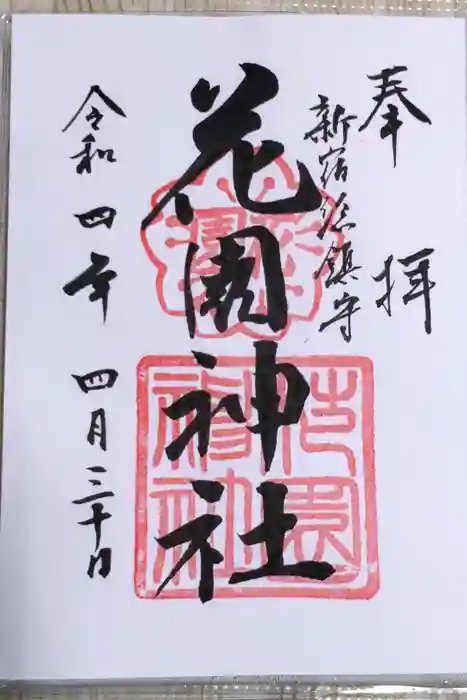 奉拝
新宿総鎮守
花園神社
令和四年四月三十日
花園
花園神社